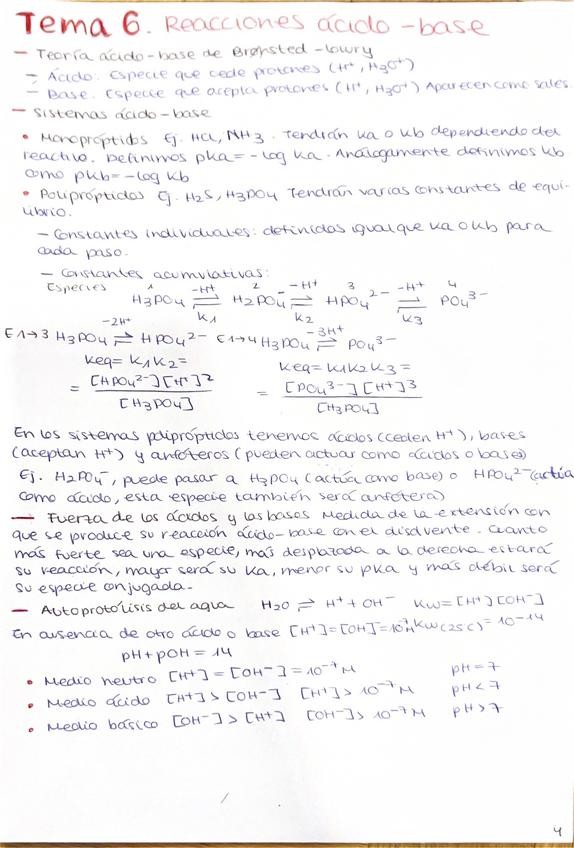 Tema 6. Reacciones ácido-base
- Teoría ácido-base de Brønsted-lowry
- Ácido. Especie que cede protones (H⁺, H₃O⁺)
- Base. Especie que acepta protones (H⁺, H₃O⁺) Aparecen como sales.
- Sistemas ácido-base
• Monopróptidos Ej. HCl, NH3. Tendrán Ka o Kb dependiendo del
reactivo. Definimos pKa = -log Ka. Análogamente definimos Kb
como pKb = -log Kb
• Polipróptidos Ej. H₂S, H₃PO₄ Tendrán varias constantes de equi-
librio.
- Constantes individuales: definidas igual que Ka o Kb para
cada paso.
- Constantes acumulativas:
Especies 1 -H⁺ 2 -H⁺ 3 -H⁺ 4
H₃PO₄ ⇌ H₂PO₄⁻ ⇌ HPO₄²⁻ ⇌ PO₄³⁻
K₁ K₂ K₃
-2H⁺ -3H⁺
E1→3 H₃PO₄ ⇌ HPO₄²⁻ E1→4 H₃PO₄ ⇌ PO₄³⁻
Keq = K₁K₂ = Keq = K₁K₂K₃ =
= [HPO₄²⁻][H⁺]² / [H₃PO₄] = [PO₄³⁻][H⁺]³ / [H₃PO₄]
En los sistemas polipróptidos tenemos ácidos (ceden H⁺), bases
(aceptan H⁺) y anfóteros (pueden actuar como ácidos o bases)
Ej. H₂PO₄⁻, puede pasar a H₃PO₄ (actúa como base) o HPO₄²⁻ (actúa
como ácido, esta especie también será anfótera)
- Fuerza de los ácidos y las bases Medida de la extensión con
que se produce su reacción ácido-base con el disolvente. Cuanto
más fuerte sea una especie, más desplazada a la derecha estará
su reacción, mayor será su Ka, menor su pKa y más débil será
su especie conjugada.
- Autoprotólisis del agua H₂O ⇌ H⁺ + OH⁻ Kw = [H⁺][OH⁻]
En ausencia de otro ácido o base [H⁺] = [OH⁻] = 10⁻⁷M Kw (25C) = 10⁻¹⁴
pH + pOH = 14
• Medio neutro [H⁺] = [OH⁻] = 10⁻⁷ M pH = 7
• Medio ácido [H⁺] > [OH⁻] [H⁺] > 10⁻⁷ M pH < 7
• Medio básico [OH⁻] > [H⁺] [OH⁻] > 10⁻⁷ M pH > 7
4